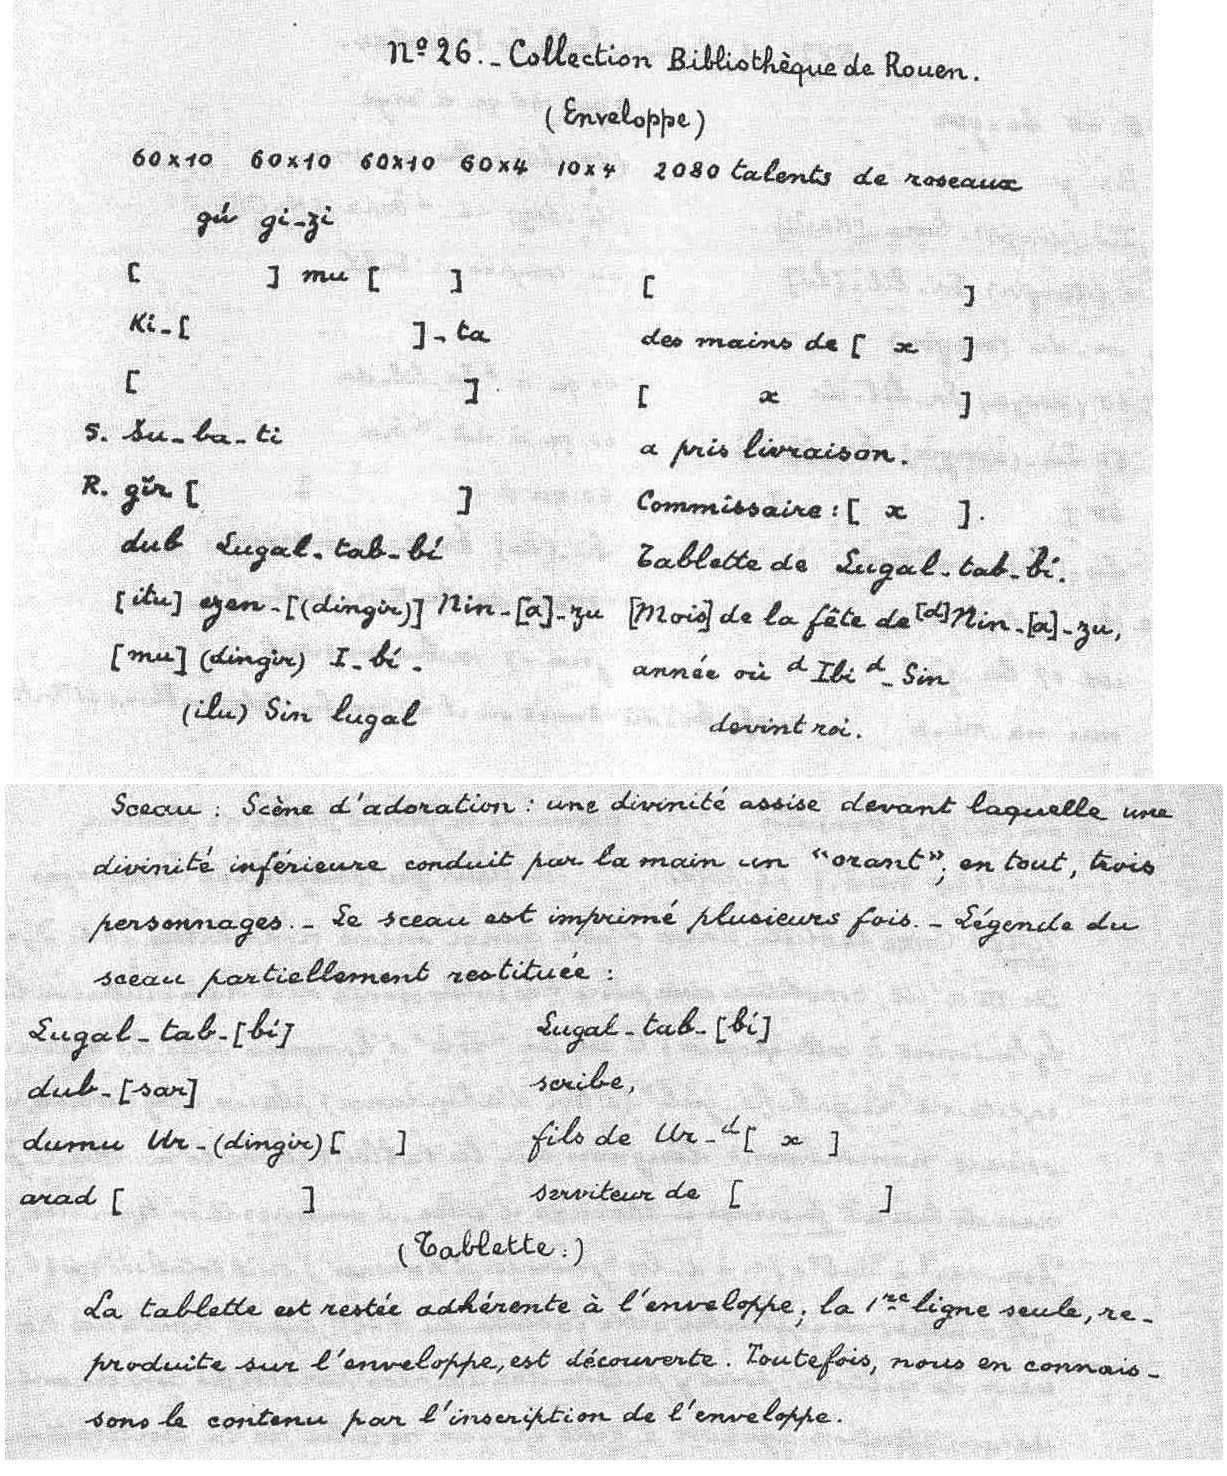 Nº 26. - Collection Bibliothèque de Rouen.
(Enveloppe)
60x10 60x10 60x10 60x4 10x4 2080 talents de roseaux
gú gi-zi
[ ] mu [ ] [ ]
Ki-[ ]-ta des mains de [ x ]
[ ] [ x ]
5. Šu-ba-ti a pris livraison.
R. gìr [ ] Commissaire : [ x ].
dub Lugal-tab-bí Tablette de Lugal-tab-bí.
[itu] ezen-[(dingir)] Nin-[a]-zu [Mois] de la fête de [d] Nin-[a]-zu,
[mu] (dingir) I-bí- année où d Ibi d-Sin
(ilu) Sin lugal devint roi.
Sceau : Scène d'adoration : une divinité assise devant laquelle une
divinité inférieure conduit par la main un "orant"; en tout, trois
personnages. - Le sceau est imprimé plusieurs fois. - Légende du
sceau partiellement restituée :
Lugal-tab-[bí] Lugal-tab-[bí]
dub-[sar] scribe,
dumu Ur-(dingir) [ ] fils de Ur-d [ x ]
arad [ ] serviteur de [ ]
(Tablette :)
La tablette est restée adhérente à l'enveloppe; la 1re ligne seule, re-
produite sur l'enveloppe, est découverte. Toutefois, nous en connais-
sons le contenu par l'inscription de l'enveloppe.